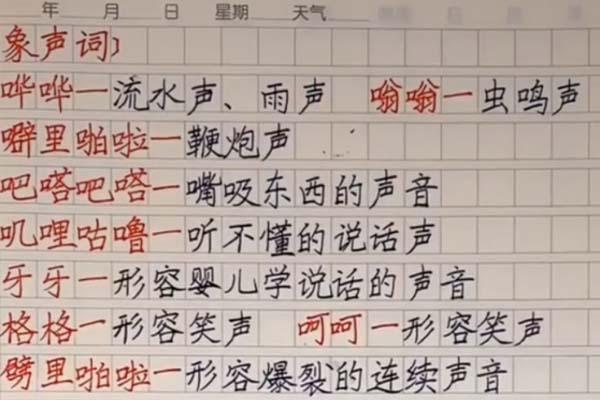 年 月 日 星期 天气
象声词)
哗哗—流水声、雨声 嗡嗡—虫鸣声
噼里啪啦—鞭炮声
吧嗒吧嗒—嘴吸东西的声音
叽哩咕噜—听不懂的说话声
牙牙—形容婴儿学说话的声音
格格—形容笑声 呵呵—形容笑声
劈里啪啦—形容爆裂的连续声音